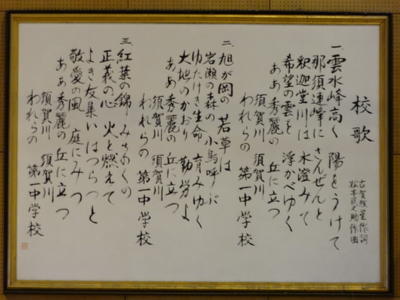 校歌
作詞
作曲
一 雲水峰高く 陽をうけて
那須連峰に さんぜんと
釈迦堂川は 水澄みて
希望の雲を 浮かべゆく
ああ秀麗の 丘に立つ
須賀川 須賀川
われらの 第一中学校
二 旭が岡の 若草は
岩瀬の森の 小鳥呼びに
ゆたけき生命 育みゆく
大地のかおり 勤労よ
ああ秀麗の 丘に立つ
須賀川 須賀川
われらの 第一中学校
三 紅葉の錦 みちのくの
正義の心 火と燃えて
よき友集い はつらつと
敬愛の風 庭にみつ
ああ秀麗 丘に立つ
須賀川 須賀川
われらの 第一中学校